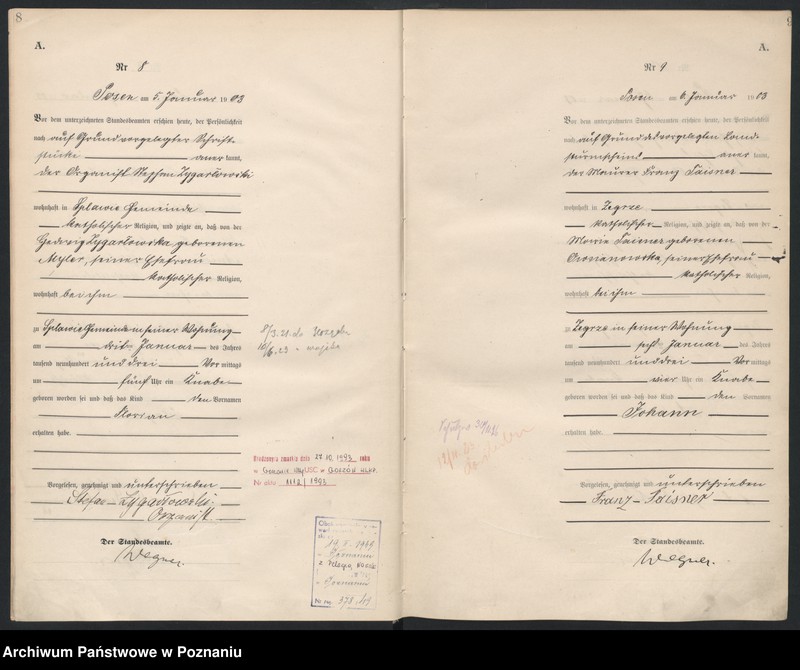 8
A.
Nr 8
Posen am 5. Januar 1903
Vor dem unterzeichneten Standesbeamten erschien heute, der Persönlichkeit
nach auf Grund vorgelegter Schrift-
stücke anerkannt,
der Organist Stephan Zygarlowski
wohnhaft in Splawie Gemeinde
katholischer Religion, und zeigte an, daß von der
Hedwig Zygarlowska geborenen
Myler, seiner Ehefrau
katholischer Religion,
wohnhaft bei ihm
zu Splawie Gemeinde in seiner Wohnung
am dritten Januar des Jahres
tausend neunhundert und drei Vormittags
um fünf Uhr ein Knabe
geboren worden sei und daß das Kind den Vornamen
Florian
erhalten habe.
Vorgelesen, genehmigt und unterschrieben
Stefan Zygarłowski
Organist
Der Standesbeamte.
Wegner.
27.10.1993 roku
w USC w
Nr aktu 1112/1993
1949
Nr 378/49
9
A.
Nr 9
Posen am 6. Januar 1903
Vor dem unterzeichneten Standesbeamten erschien heute, der Persönlichkeit
nach auf Grund des vorgelegten Land-
sturmscheins anerkannt,
der Maurer Franz Taisner
wohnhaft in Zegrze
katholischer Religion, und zeigte an, daß von der
Maria Taisner geborenen
seiner Ehefrau
katholischer Religion,
wohnhaft bei ihm
zu Zegrze in seiner Wohnung
am Januar des Jahres
tausend neunhundert und drei Vormittags
um vier Uhr ein Knabe
geboren worden sei und daß das Kind den Vornamen
Johann
erhalten habe.
Vorgelesen, genehmigt und unterschrieben
Franz Taisner
Der Standesbeamte.
Wegner.
Archiwum Państwowe w Poznaniu